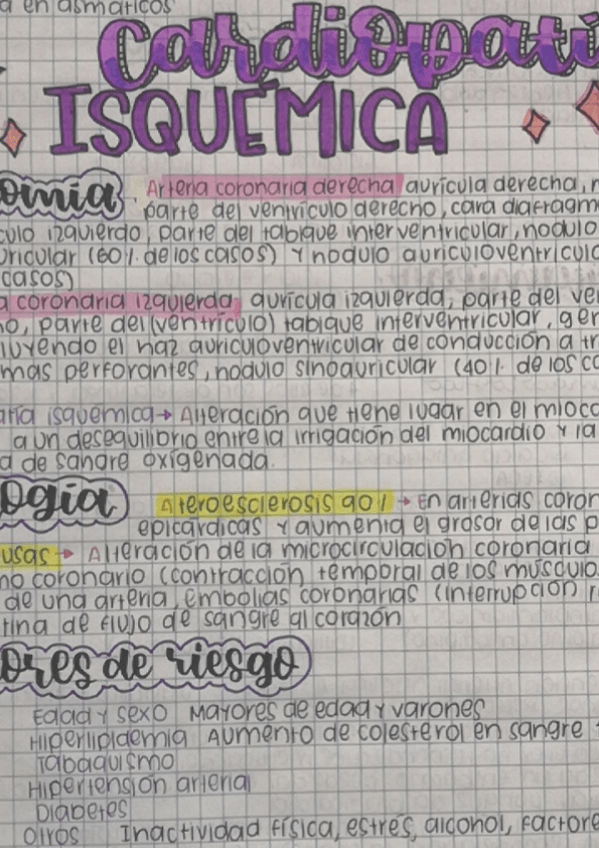 a en asmaticos
Cardiopati
ISQUÉMICA
omia. Arteria coronaria derecha aurícula derecha,
parte del ventrículo derecho, cara diafragm
culo izquierdo, parte del tabique interventricular, nodulo
uricular (60%. de los casos) y nodulo auriculoventricula
casos)
a coronaria izquierda, aurícula izquierda, parte del ve
ho, parte del (ventrículo) tabique interventricular, gen
luyendo el haz auriculoventricular de conducción a tr
mas perforantes, nodulo sinoauricular (40%. de los ca
aria isquemica → Alteración que tiene lugar en el mioca
a un desequilibrio entre la irrigación del miocardio y la
a de sangre oxigenada.
ogía Ateroesclerosis 90% → En arterias coron
epicárdicas y aumenta el grosor de las p
usas → Alteración de la microcirculación coronaria
mo coronario (contracción temporal de los músculo
de una arteria, embolias coronarias (interrupción r
tina de flujo de sangre al corazón
ores de riesgo
Edad y sexo Mayores de edad y varones
Hiperlipidemia Aumento de colesterol en sangre
Tabaquismo
Hipertensión arterial
Diabetes
Otros Inactividad física, estrés, alcohol, factore